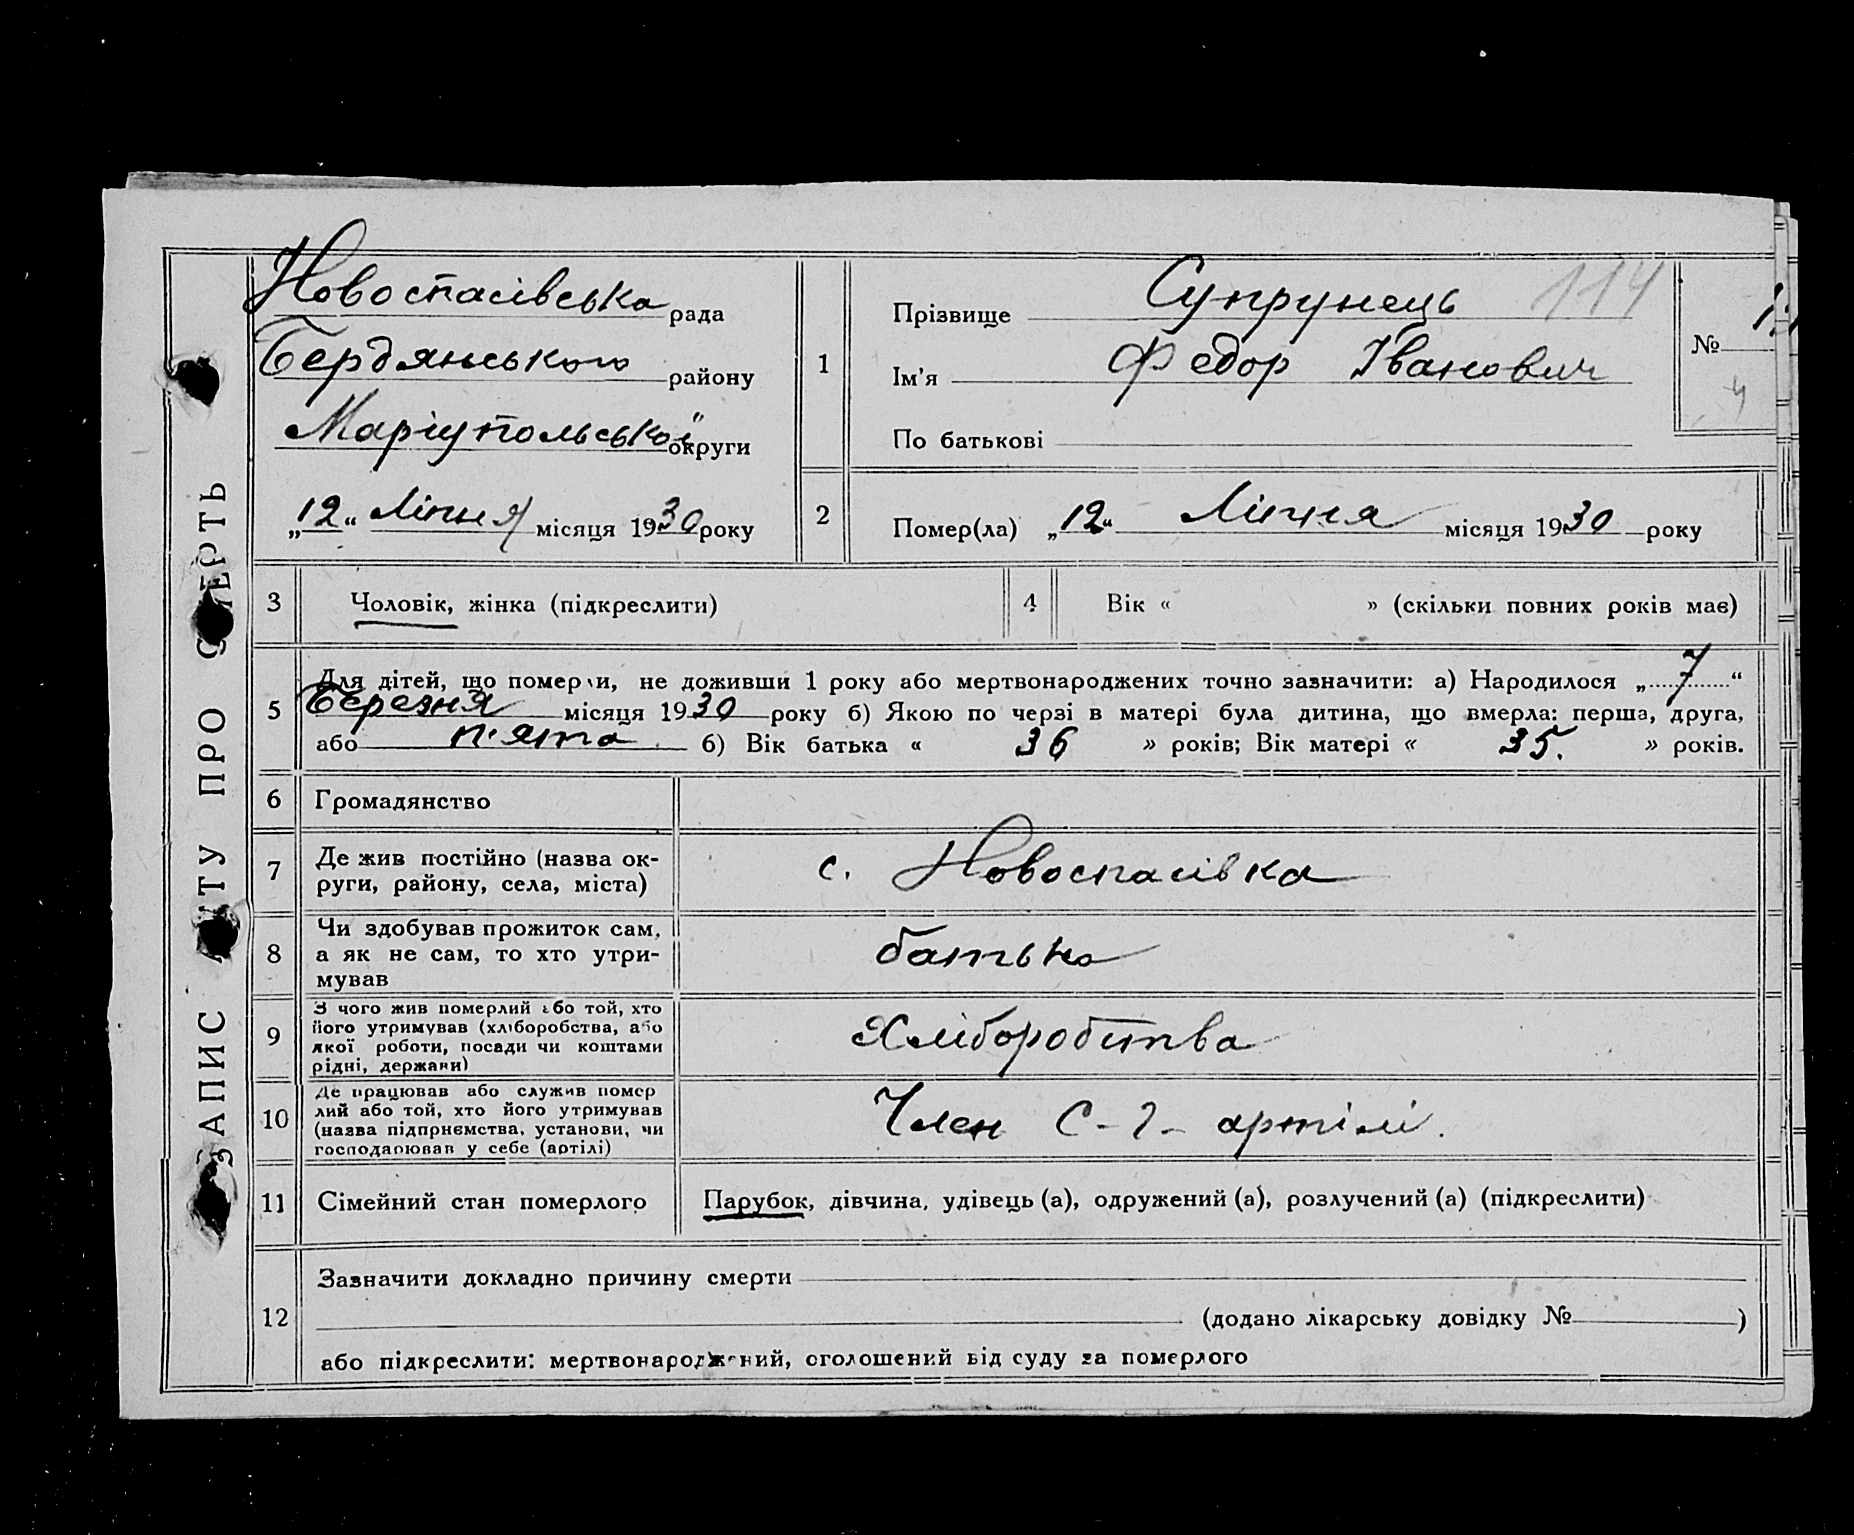 ЗАПИС АКТУ ПРО СМЕРТЬ
Новоспасівська рада
Бердянського району
Маріупольської округи
„12“ Ліпня місяця 1930 року
1
Прізвище Супрунець 114
Ім'я Федор Іванович
По батькові
№
2
Помер(ла) „12“ Ліпня місяця 1930 року
3 Чоловік, жінка (підкреслити)
4 Вік « » (скільки повних років має)
5 Для дітей, що померли, не доживши 1 року або мертвонароджених точно зазначити: а) Народилося „7“
Березня місяця 1930 року б) Якою по черзі в матері була дитина, що вмерла: перша, друга,
або п'ята б) Вік батька « 36 » років; Вік матері « 35. » років.
6 Громадянство
7 Де жив постійно (назва ок-
руги, району, села, міста)
с. Новоспасівка
8 Чи здобував прожиток сам,
а як не сам, то хто утри-
мував
батько
9 З чого жив померлий або той, хто
його утримував (хліборобства, або
якої роботи, посади чи коштами
рідні, держави)
Хліборобства
10 Де працював або служив помер
лий або той, хто його утримував
(назва підприємства, установи, чи
господарював у себе (артілі)
Член С-г- артілі.
11 Сімейний стан померлого
Парубок, дівчина, удівець (а), одружений (а), розлучений (а) (підкреслити)
12 Зазначити докладно причину смерти
(додано лікарську довідку № )
або підкреслити: мертвонароджений, оголошений від суду за померлого